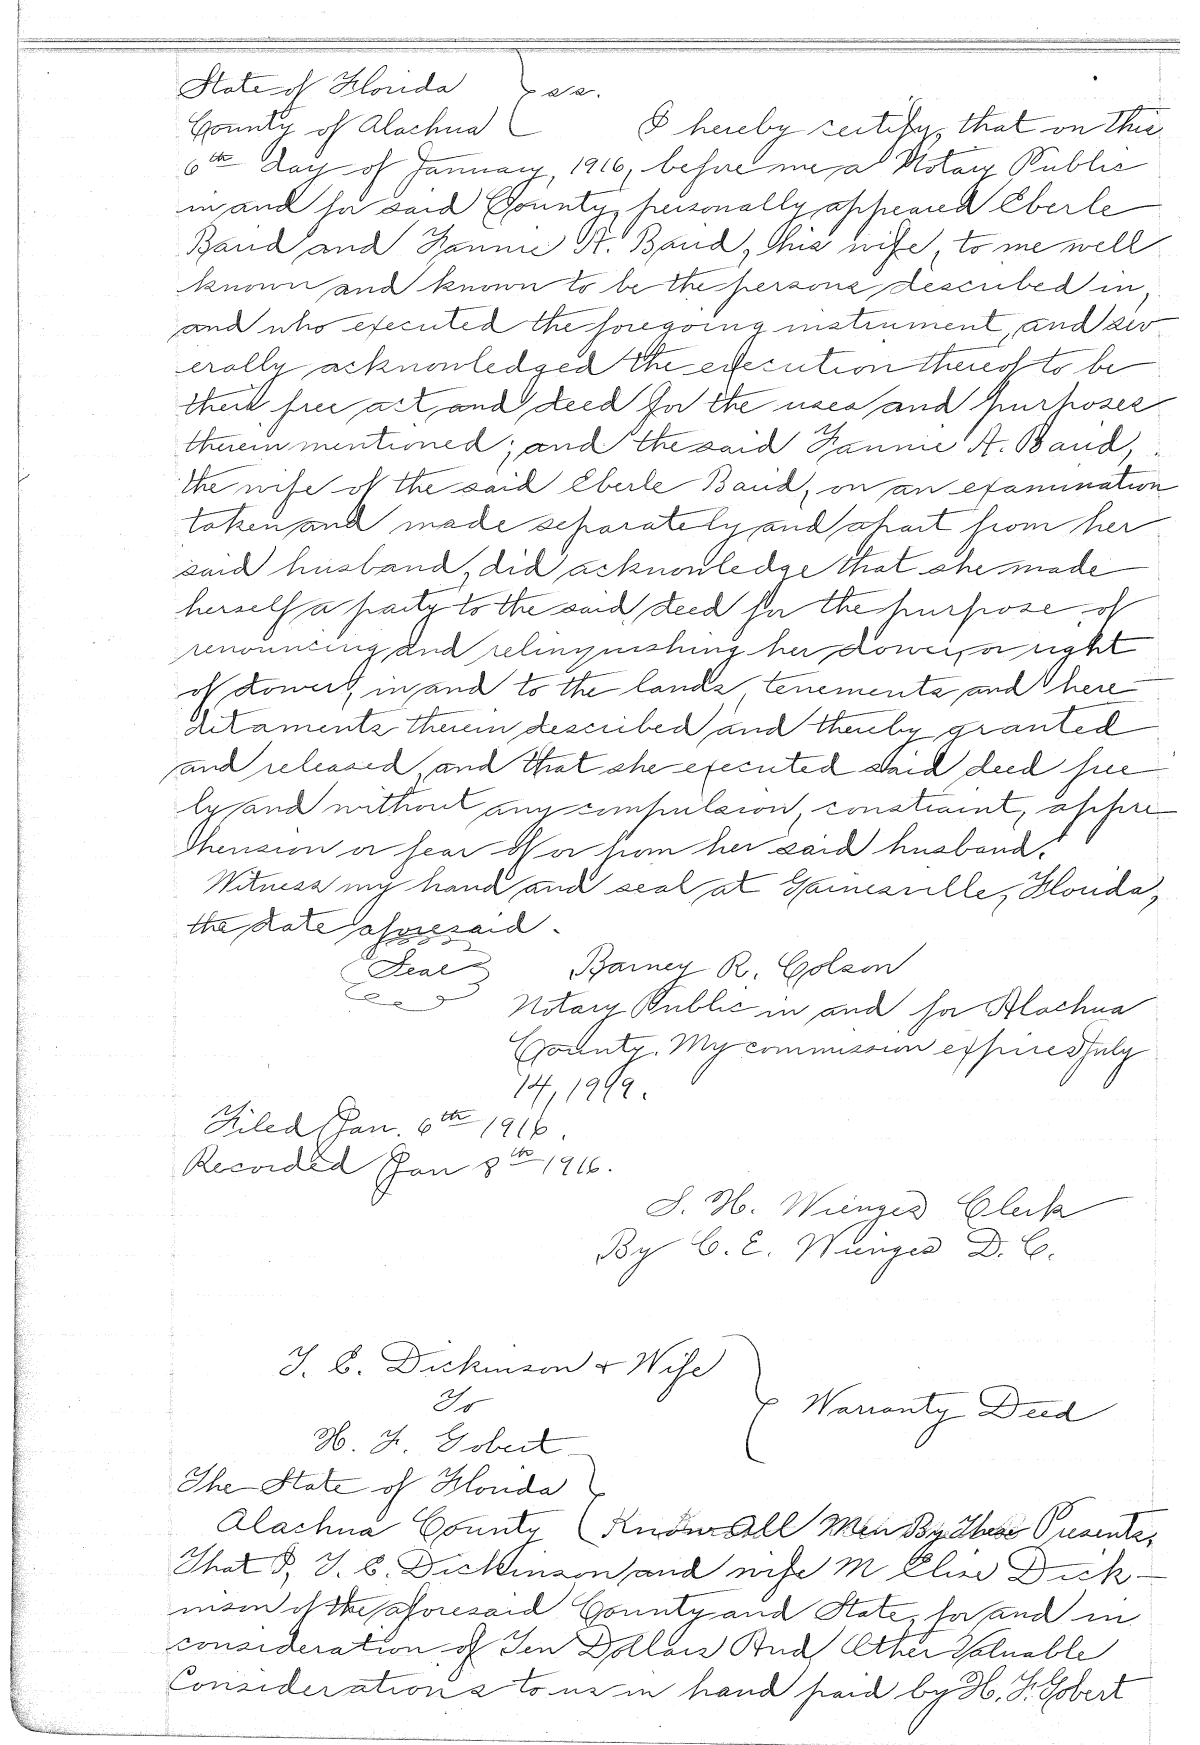 State of Florida } ss.
County of Alachua I hereby certify, that on this
6th day of January, 1916, before me, a Notary Public
in and for said County, personally appeared Eberle
Baird and Fannie A. Baird, his wife, to me well
known and known to be the persons described in,
and who executed the foregoing instrument, and sev
erally acknowledged the execution thereof to be
their free act and deed for the uses and purposes
therein mentioned; and the said Fannie A. Baird,
the wife of the said Eberle Baird, on an examination
taken and made separately and apart from her
said husband, did acknowledge that she made
herself a party to the said deed for the purpose of
renouncing and relinquishing her dower, or right
of dower, in and to the lands, tenements and here
ditaments therein described and thereby granted
and released, and that she executed said deed free
ly and without any compulsion, constraint, appre
hension or fear of or from her said husband.
Witness my hand and seal at Gainesville, Florida,
the date aforesaid.
Seal Barney R. Colson
Notary Public in and for Alachua
County. My commission expires July
14, 1919.
Filed Jan. 6th 1916.
Recorded Jan 8th 1916.
S. H. Wienges Clerk
By C. E. Wienges D. C.
T. E. Dickinson + Wife
To } Warranty Deed
H. F. Gobert
The State of Florida
Alachua County Know All Men By These Presents,
That I, T. E. Dickinson and wife M Elise Dick-
inson of the aforesaid County and State, for and in
consideration of Ten Dollars And Other Valuable
Considerations to us in hand paid by H. F. Gobert